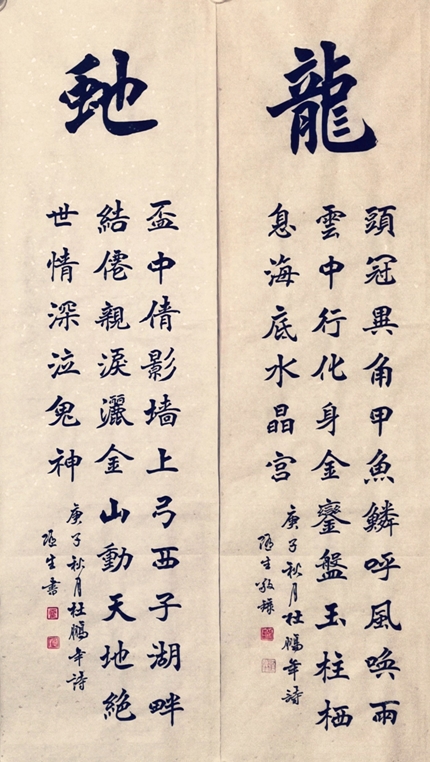 龍
頭冠異角甲魚鱗呼風喚雨
雲中行化身金鑾盤玉柱栖
息海底水晶宮
庚子秋月杜鵬年詩
生敬錄
虵
盃中倩影墻上弓西子湖畔
結僊親淚灑金山動天地絕
世情深泣鬼神
庚子秋月杜鵬年詩
生書